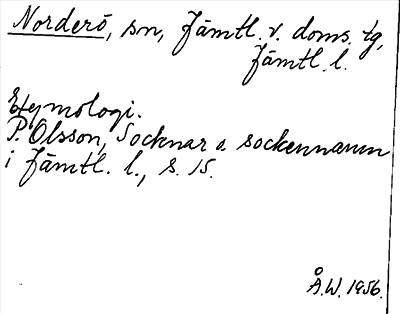 Norderö, sn, Jämtl. v. doms. tg,
Jämtl. l.
Etymologi.
P. Olsson, Socknar o. sockennamn
i Jämtl. l., s. 15.
Å.W. 1956.